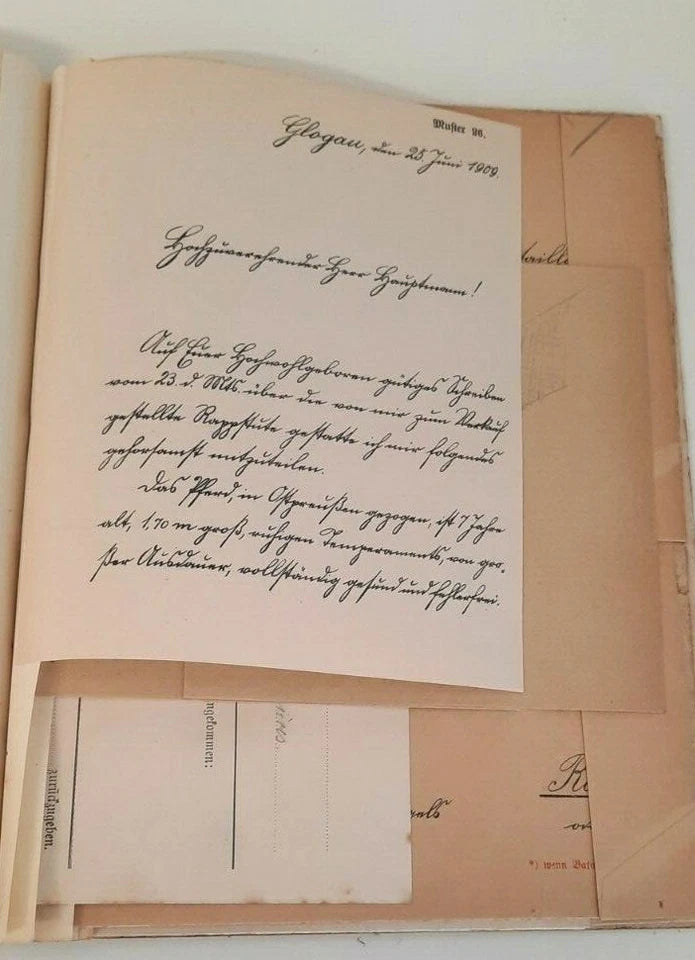 Muster 26.
Glogau, den 25. Juni 1909.
Hochzuverehrender Herr Hauptmann!
Auf Euer Hochwohlgeboren gütiges Schreiben
vom 23. d. Mts. über die von mir zum Verkauf
gestellte Rappstute gestatte ich mir folgendes
gehorsamst mitzuteilen.
Das Pferd, in Ostpreußen gezogen, ist 7 Jahre
alt, 1,70 m groß, ruhigen Temperaments, von gro-
ßer Ausdauer, vollständig gesund und fehlerfrei.
zurückzugeben.
ngekommen:
*) wenn